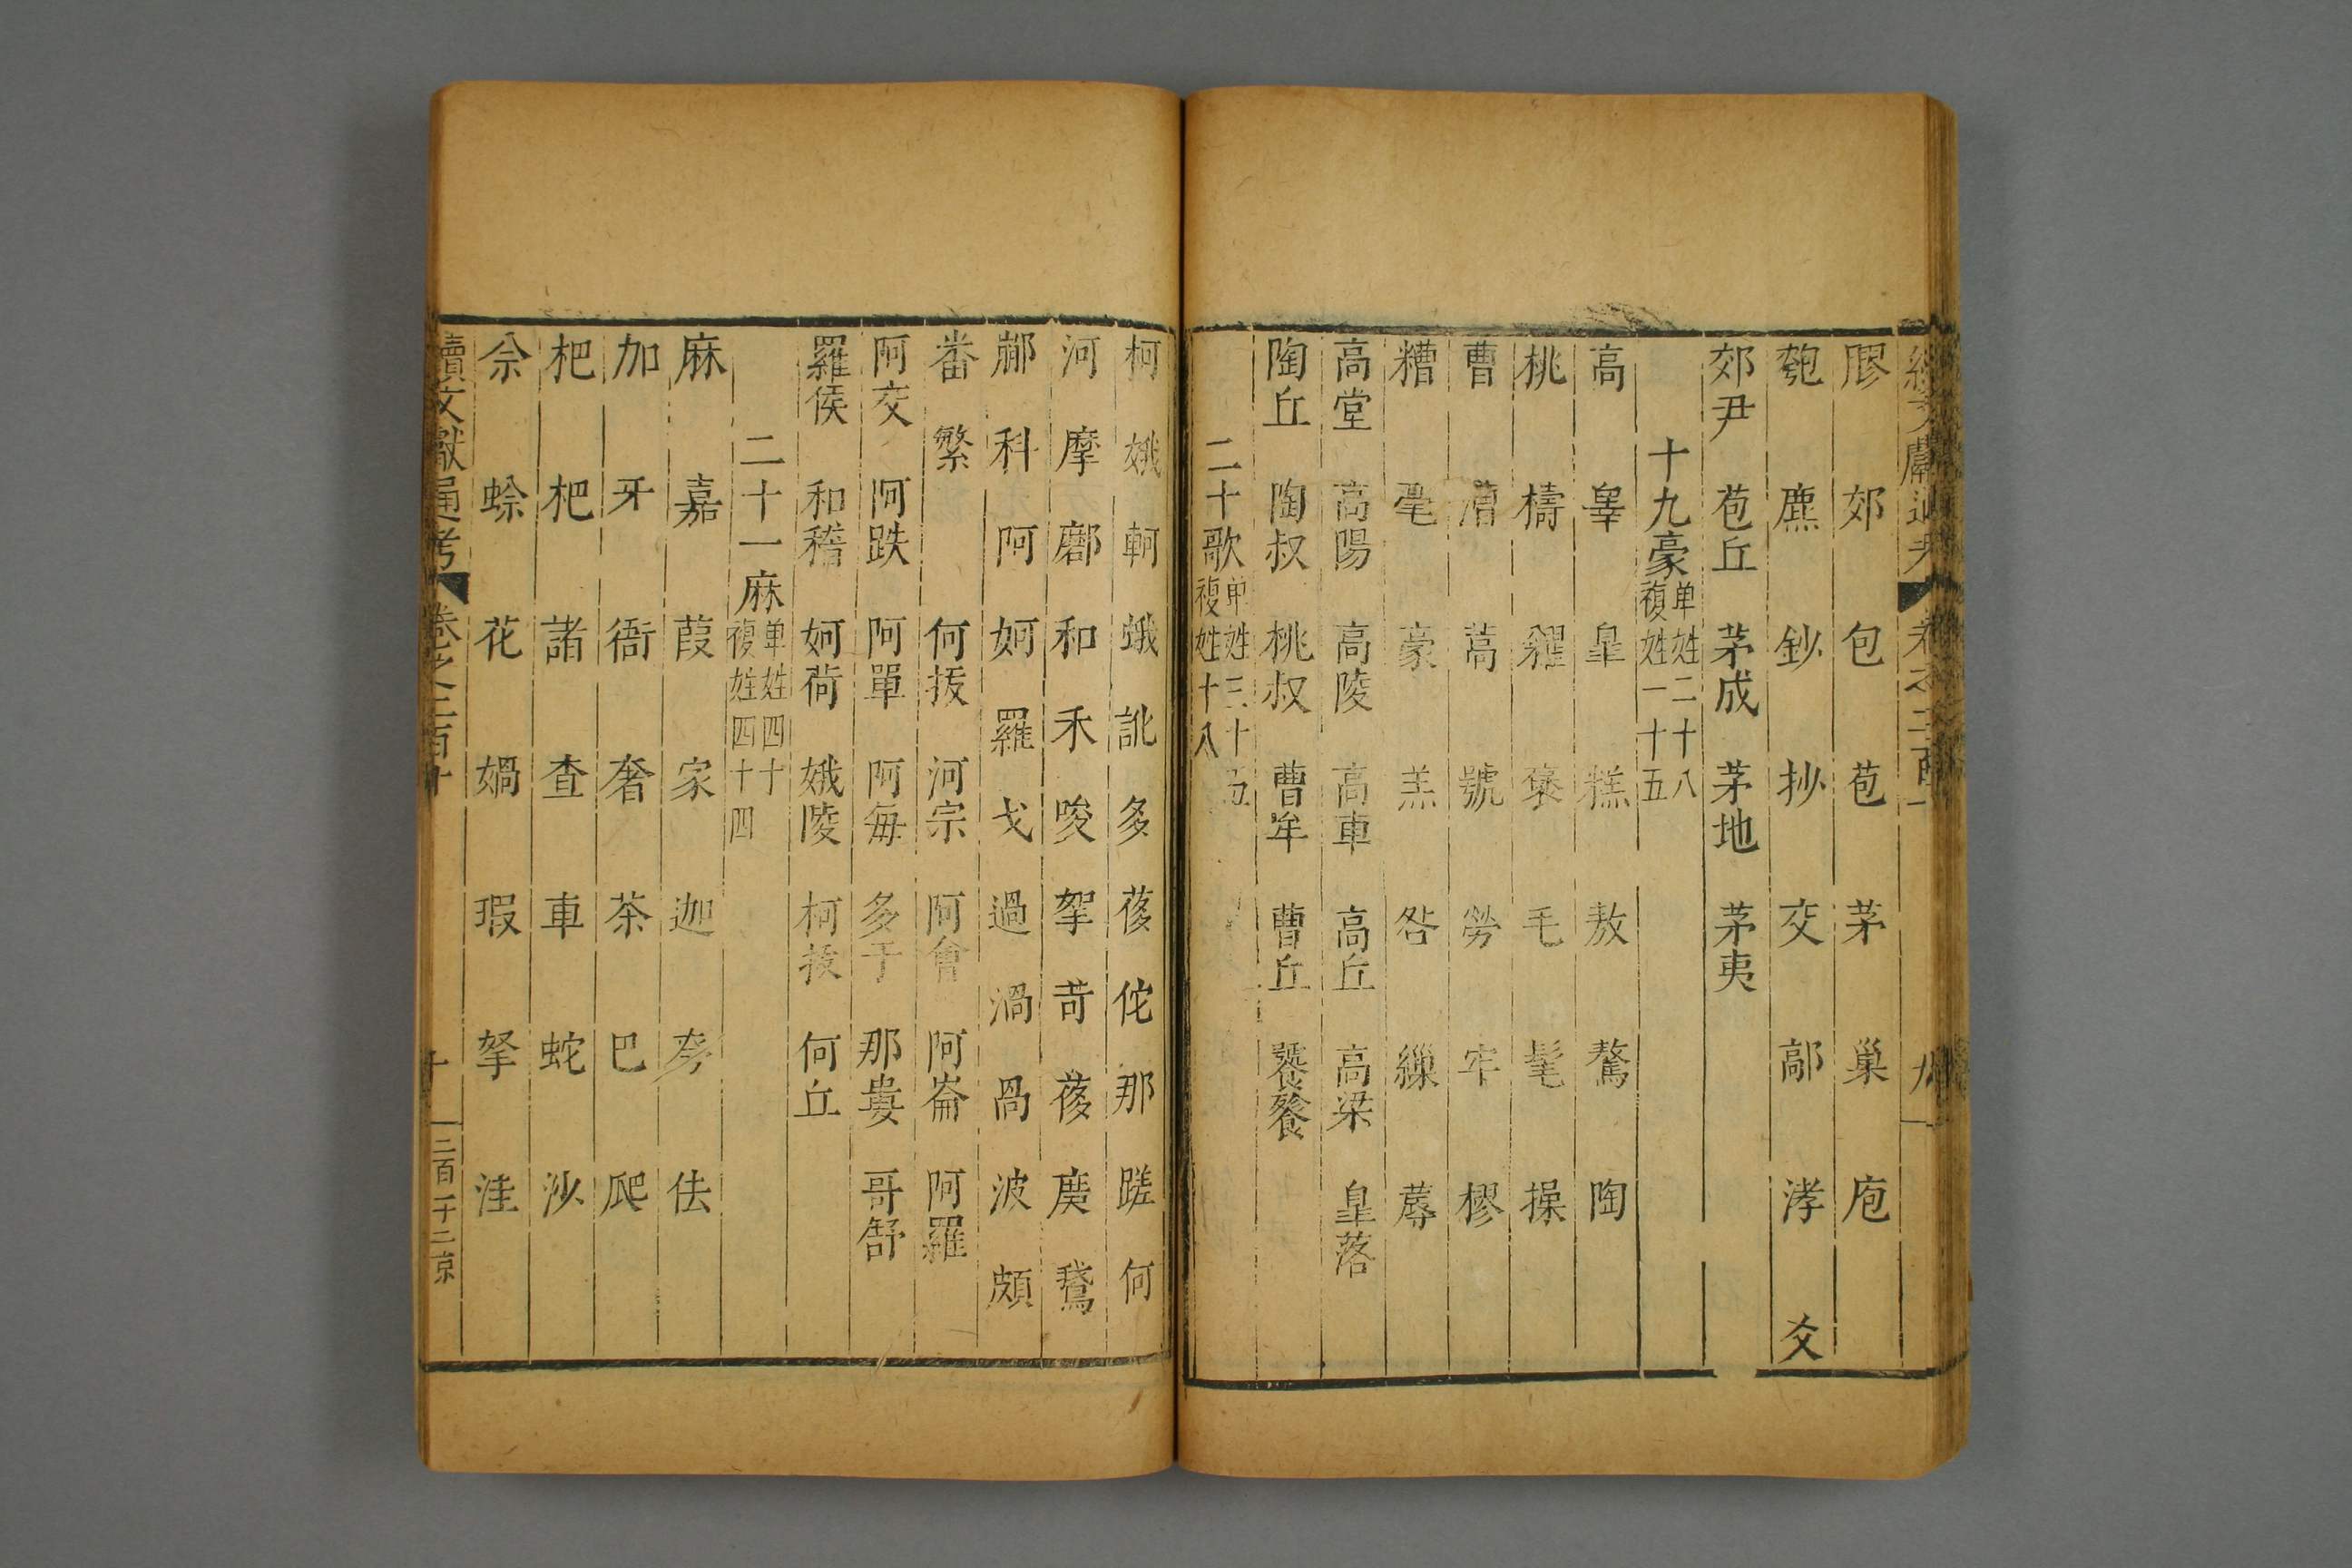 膠 郊 包 苞 茅 巢 庖
匏 麃 鈔 抄 交 鄗 涍 爻
郊尹 苞丘 茅成 茅地 茅夷
十九豪 单姓二十八 複姓一十五
高 皋 皐 糕 敖 驁 陶
桃 檮 糴 褒 毛 髦 操
曹 漕 蒿 號 勞 牢 樛
糟 毫 豪 羔 咎 繰 薅
高堂 高陽 高陵 高車 高丘 高梁 皐落
陶丘 陶叔 桃叔 曹牟 曹丘 饕餮
二十歌 单姓三十五 複姓十八
柯 娥 軻 蛾 訛 多 茤 佗 那 蹉 何
河 摩 鄜 和 禾 唆 挐 苛 茤 鵞
鄘 科 阿 妸 羅 戈 過 渦 咼 波 頗
番 繁 何拔 河宗 阿會 阿崙 阿羅
阿交 阿跌 阿單 阿每 多于 那婁 哥舒
羅侯 和稽 妸荷 娥陵 柯拔 何丘
二十一麻 单姓四十 複姓四十四
麻 嘉 葭 家 迦 佉
加 牙 衙 奢 茶 巴 爬
杷 杷 諸 查 車 蛇 沙
佘 蜍 花 媧 瑕 拏 洼
續文獻通考 卷之二百十 十 二百千二京